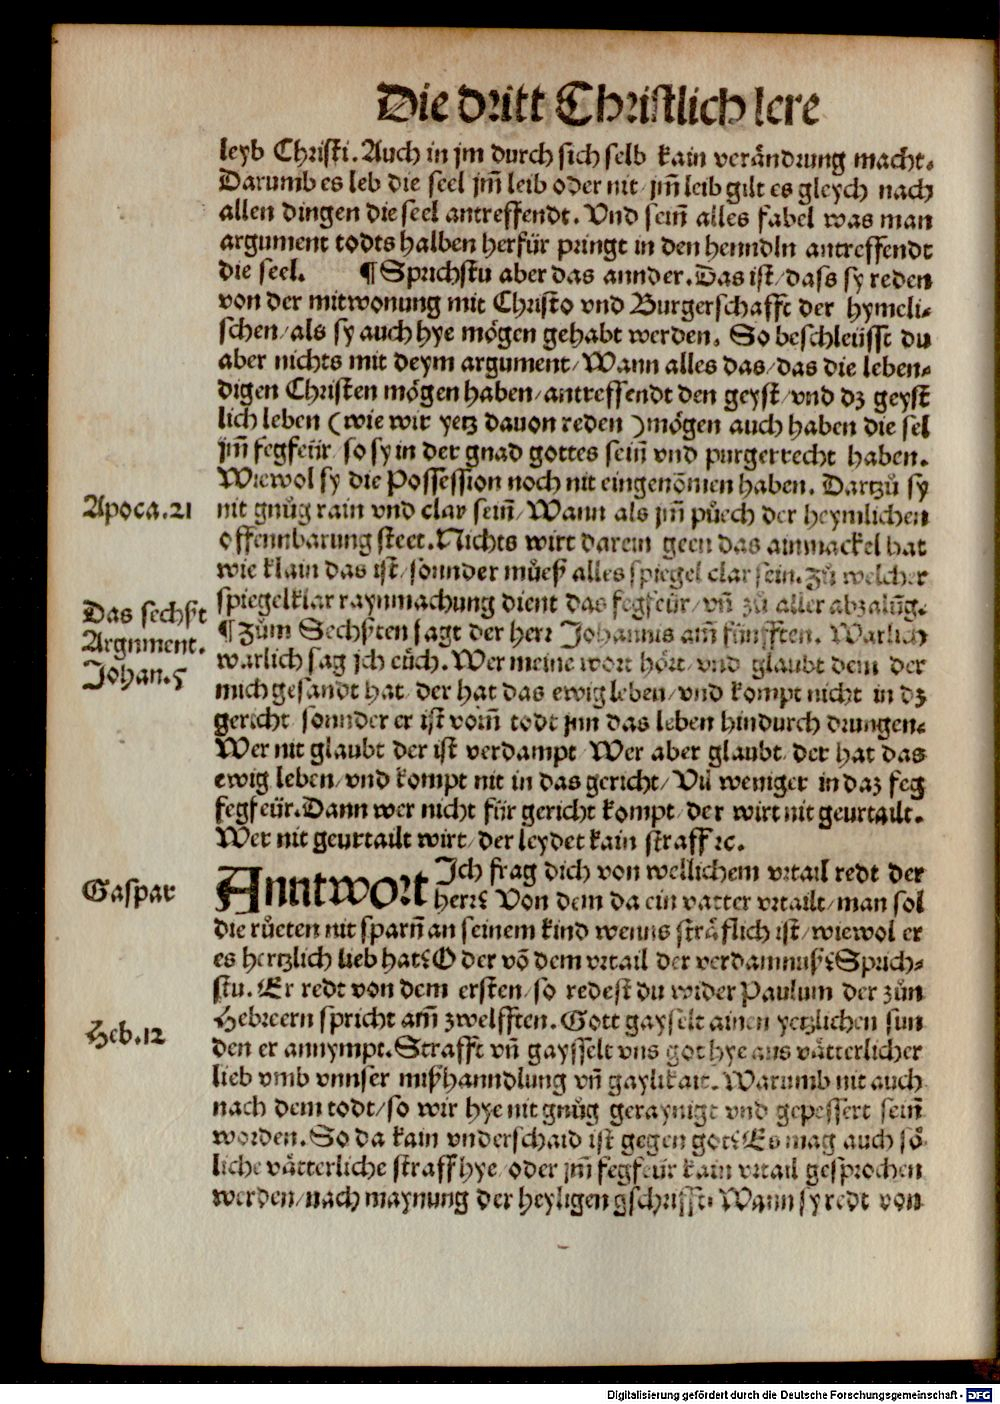 Die dritt Christlich lere
leyb Christi. Auch in jm durch sich selb kain verändrung macht.
Darumb es leb die seel jm̃ leib oder nit / jm̃ leib gilt es gleych nach
allen dingen die seel antreffendt. Vnd sein̄ alles fabel was man
argument todts halben herfür pringt in den henndln antreffendt
die seel. ¶ Sprichstu aber das annder. Das ist / dass sy reden
von der mitwonung mit Christo vnd Burgerschafft der hymeli-
schen / als sy auch hye mögen gehabt werden. So beschleüsst du
aber nichts mit deym argument / Wann alles das / das die leben-
digen Christen mögen haben / antreffendt den geyst / vnd dz geyst
lich leben (wie wir yetz dauon reden) mögen auch haben die sel
jm̃ fegfeür / so sy in der gnad gottes sein̄ vnd purgerrecht haben.
Wiewol sy die Possession noch nit eingenōmen haben. Dartzů sy
Apoca. 21
nit gnůg rain vnd clar sein̄ / Wann als jm̃ půech der heymlichen
offennbarung steet. Nichts wirt darein geen das ainmackel hat
wie klain das ist / sonnder můeß alles spiegel clar sein. Zů welcher
spiegelklar raynmachung dient das fegfeür / vn̄ zů aller abzalūg.
Das sechßt
Argument.
Johan. 5
¶ Zům Sechßten sagt der herr Johannis am̃ fünfften. Warlich
warlich sag jch eüch. Wer meine wort hört / vnd glaubt dem der
mich gesandt hat / der hat das ewig leben / vnd kompt nicht in dz
gericht sonnder er ist vom̃ todt jnn das leben hindurch drungen.
Wer nit glaubt der ist verdampt / Wer aber glaubt / der hat das
ewig leben / vnd kompt nit in das gericht / Vil weniger in daz feg
fegfeür. Dann wer nicht für gericht kompt / der wirt nit geurtailt.
Wer nit geurtailt wirt / der leydet kain straff ⁊c.
Gaspar
Anntwort Ich frag dich von wellichem vrtail redt der
herr? Von dem da ein vatter vrtailt / man sol
die růeten nit sparn̄ an seinem kind wenns sträflich ist / wiewol er
es hertzlich lieb hat? Oder vō dem vrtail der verdamnuß? Sprich-
stu. Er redt von dem ersten / so redest du wider Paulum der zůn
Heb. 12
Hebreern spricht am̃ zwelfften. Gott gayselt ainen yetzlichen sun
den er annympt. Strafft vn̄ gaysselt vns got hye aus vätterlicher
lieb vmb vnnser mißhanndlung vn̄ gaylikait. Warumb nit auch
nach dem todt / so wir hye nit gnůg geraynigt vnd gepessert sein̄
worden. So da kain vnderschaid ist gegen got? Es mag auch sö-
liche vätterliche straff hye / oder jm̃ fegfeür kain vrtail gesprochen
werden / nach maynung der heyligen gschrifft. Wann sy redt von
Digitalisierung gefördert durch die Deutsche Forschungsgemeinschaft - DFG